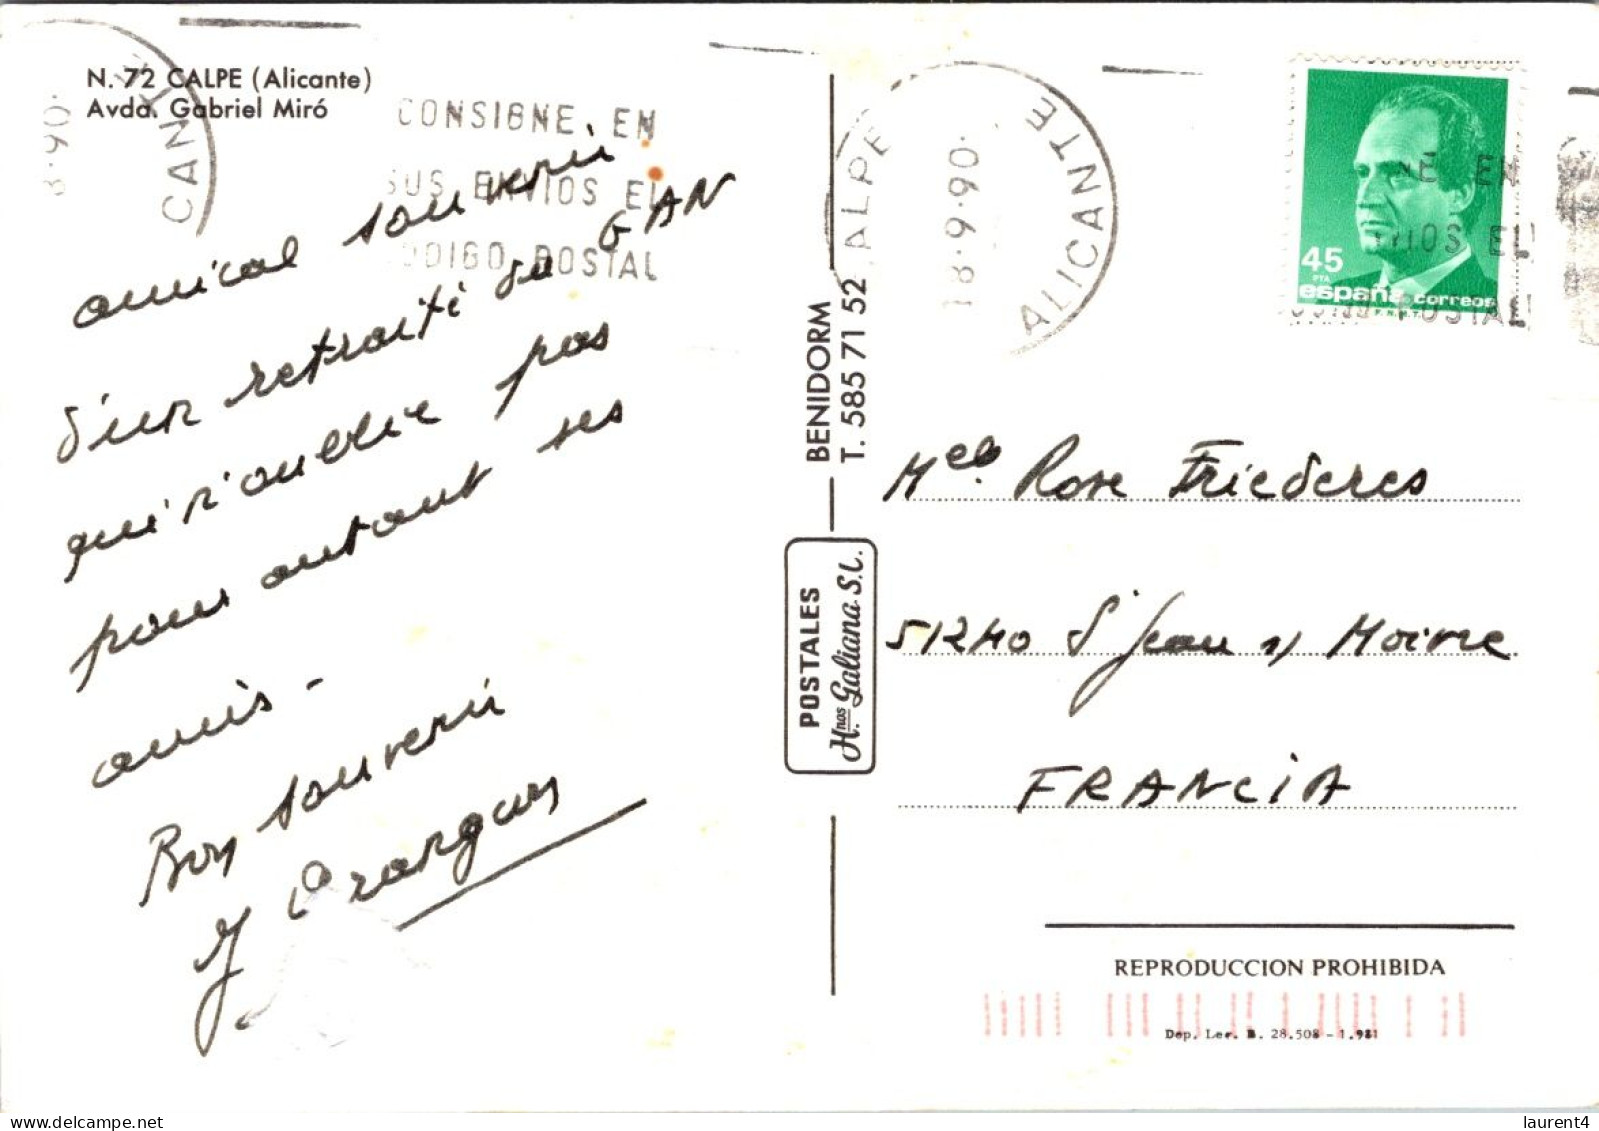 N. 72 CALPE (Alicante)
Avda. Gabriel Miró
CONSIGNE EN
SUS ENVIOS EL
CODIGO POSTAL
CALPE
18·9·90
ALICANTE
45
PTA
españa correos
F.N.M.T.
amical souvenir
d'un retraité du GAN
qui n'oublie pas
pour autant ses
amis -
Bon souvenir
BENIDORM
T. 585 71 52
POSTALES
Hnos. Galiana S.L.
Melle. Rose Friederes
51240 St Jean s/ Moivre
FRANCIA
REPRODUCCION PROHIBIDA
Dep. Leg. B. 28.508 - 1.981
laurent4